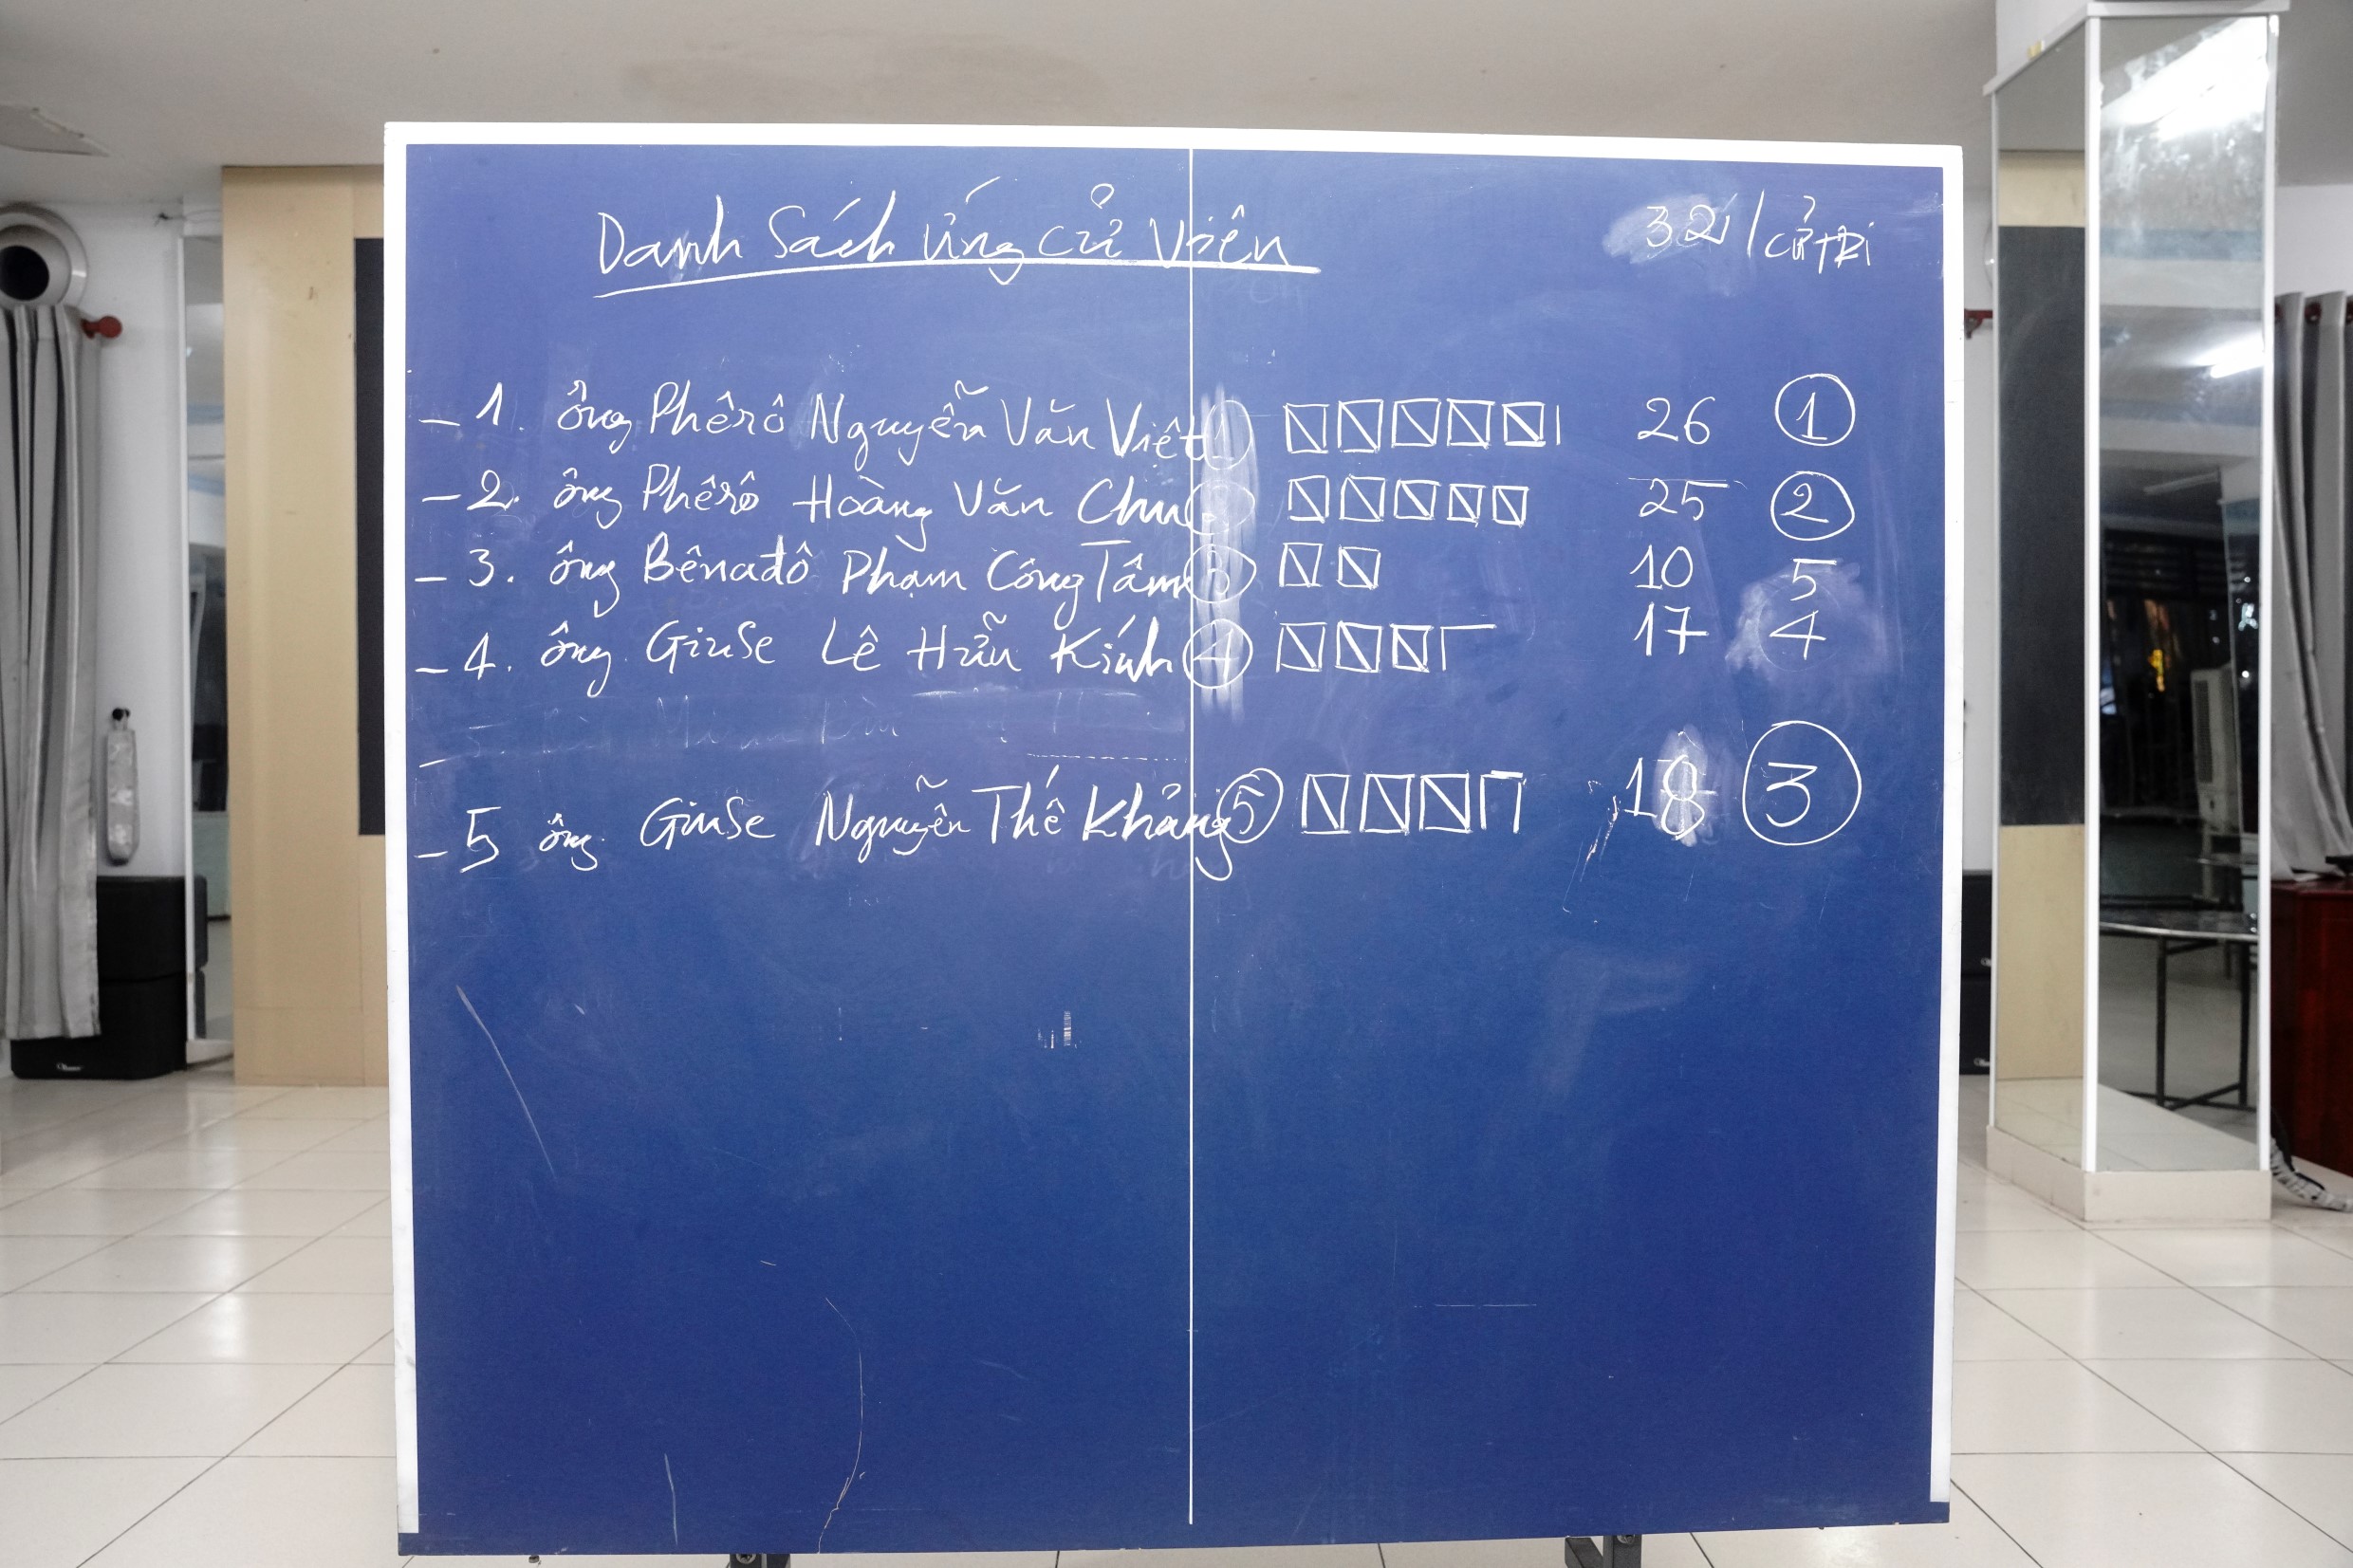 Danh Sách ứng cử Viên 32/cử tri
- 1. ông Phêrô Nguyễn Văn Việt 1 26 1
- 2. ông Phêrô Hoàng Văn Chu 25 2
- 3. ông Bênađô Phạm Công Tâm 3 10 5
- 4. ông Giuse Lê Hữu Kính 4 17 4
- 5 ông Giuse Nguyễn Thế Khảng 5 18 3